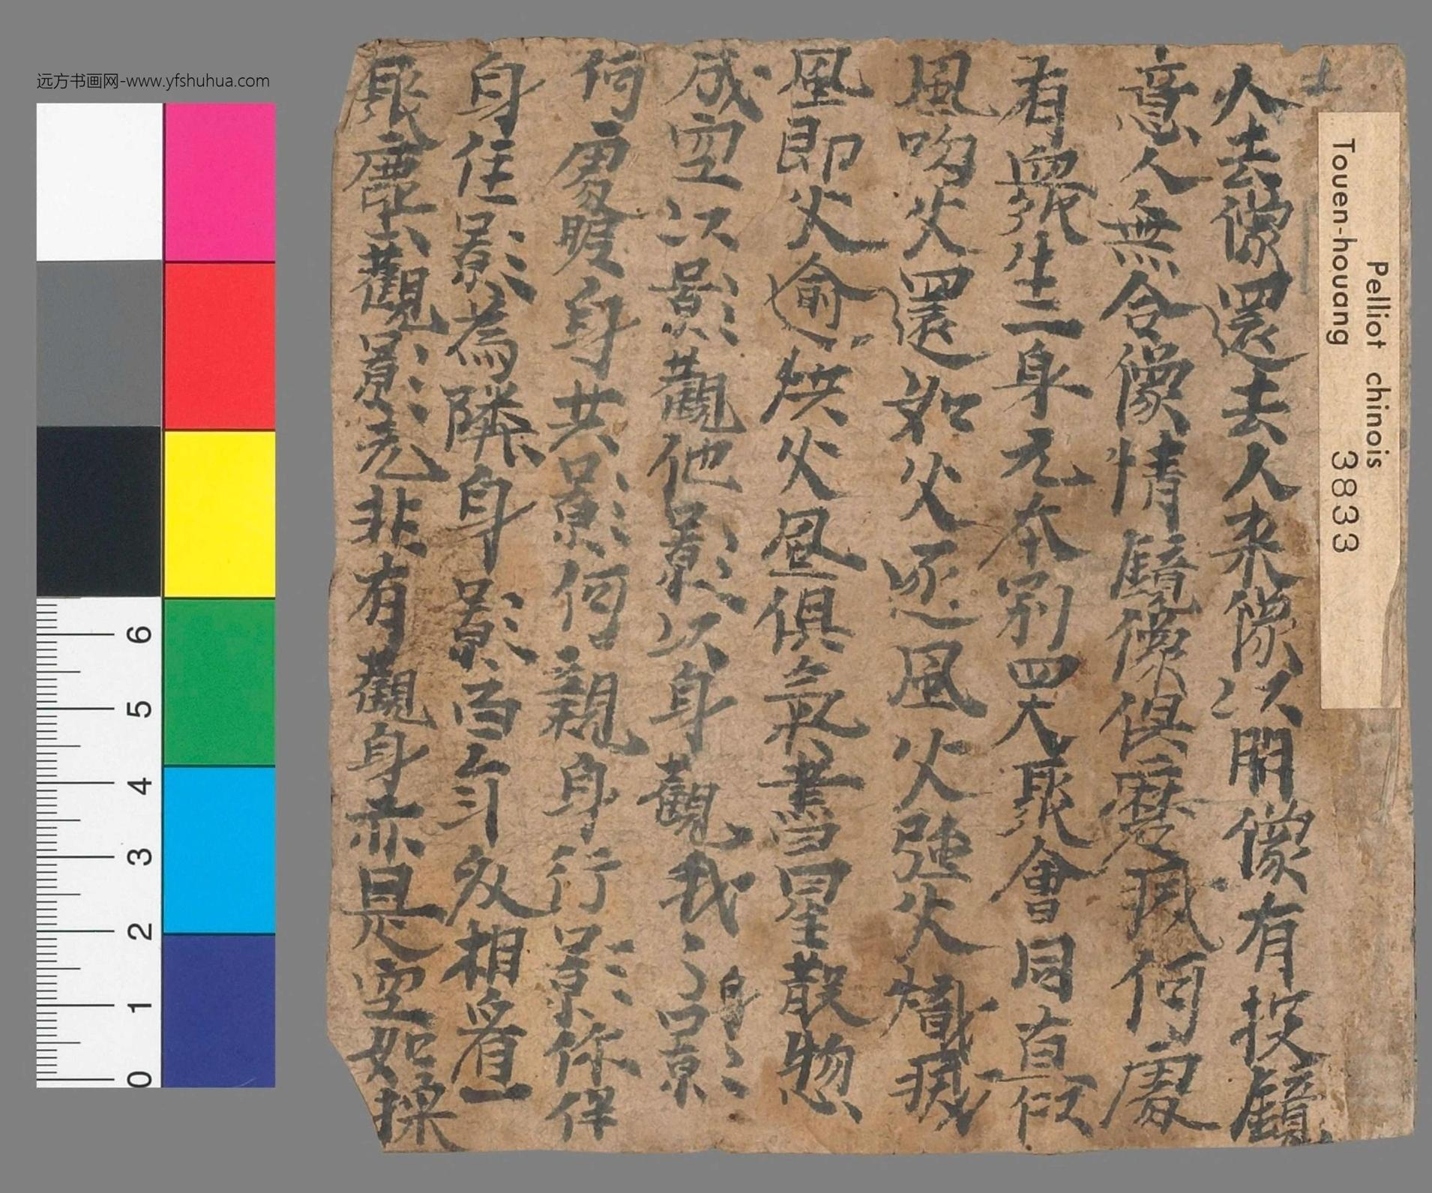 远方书画网-www.yfshuhua.com
Pelliot chinois
Touen-houang 3833
人去像還去人来像以明像有投鏡
意人無合像情鏡像俱磨滅何處
看衆生二身元本别四大聚會同直似
風吹火還如火逐風火強火熾疾
風即火愈烘火風俱氣盡星散惚
成空以影觀他影以身觀我身影
何處曖身共影何親身行影作伴
身住影為隣身影百年友相看一
聚塵觀影元非有觀身亦是空如採
6
5
4
3
2
1
0